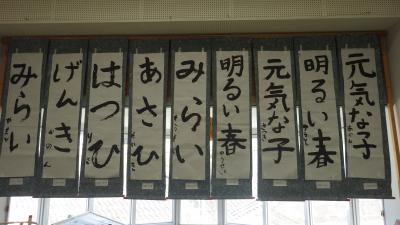 元気な子
明るい春
元気な子
明るい春
みらい
あさひ
はつひ
げんき
みらい